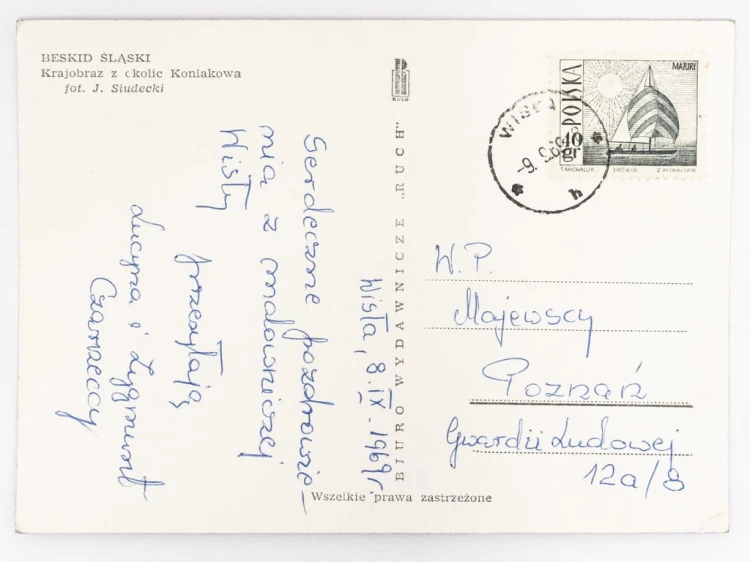 BESKID ŚLĄSKI
Krajobraz z okolic Koniakowa
fot. J. Siudecki
Wisła, 8.IX.1969r
Serdeczne pozdrowie-
nia z malowniczej
Wisły
przesyłają
Lucyna i Zygmunt
Czarneccy
RUCH
BIURO WYDAWNICZE „RUCH”
Wszelkie prawa zastrzeżone
POLSKA
MAZURY
40 gr
T. MICHALUK
Z. KOWALSKI
WISŁA
h
W.P.
Majewscy
Poznań
Gwardii Ludowej
12a/8